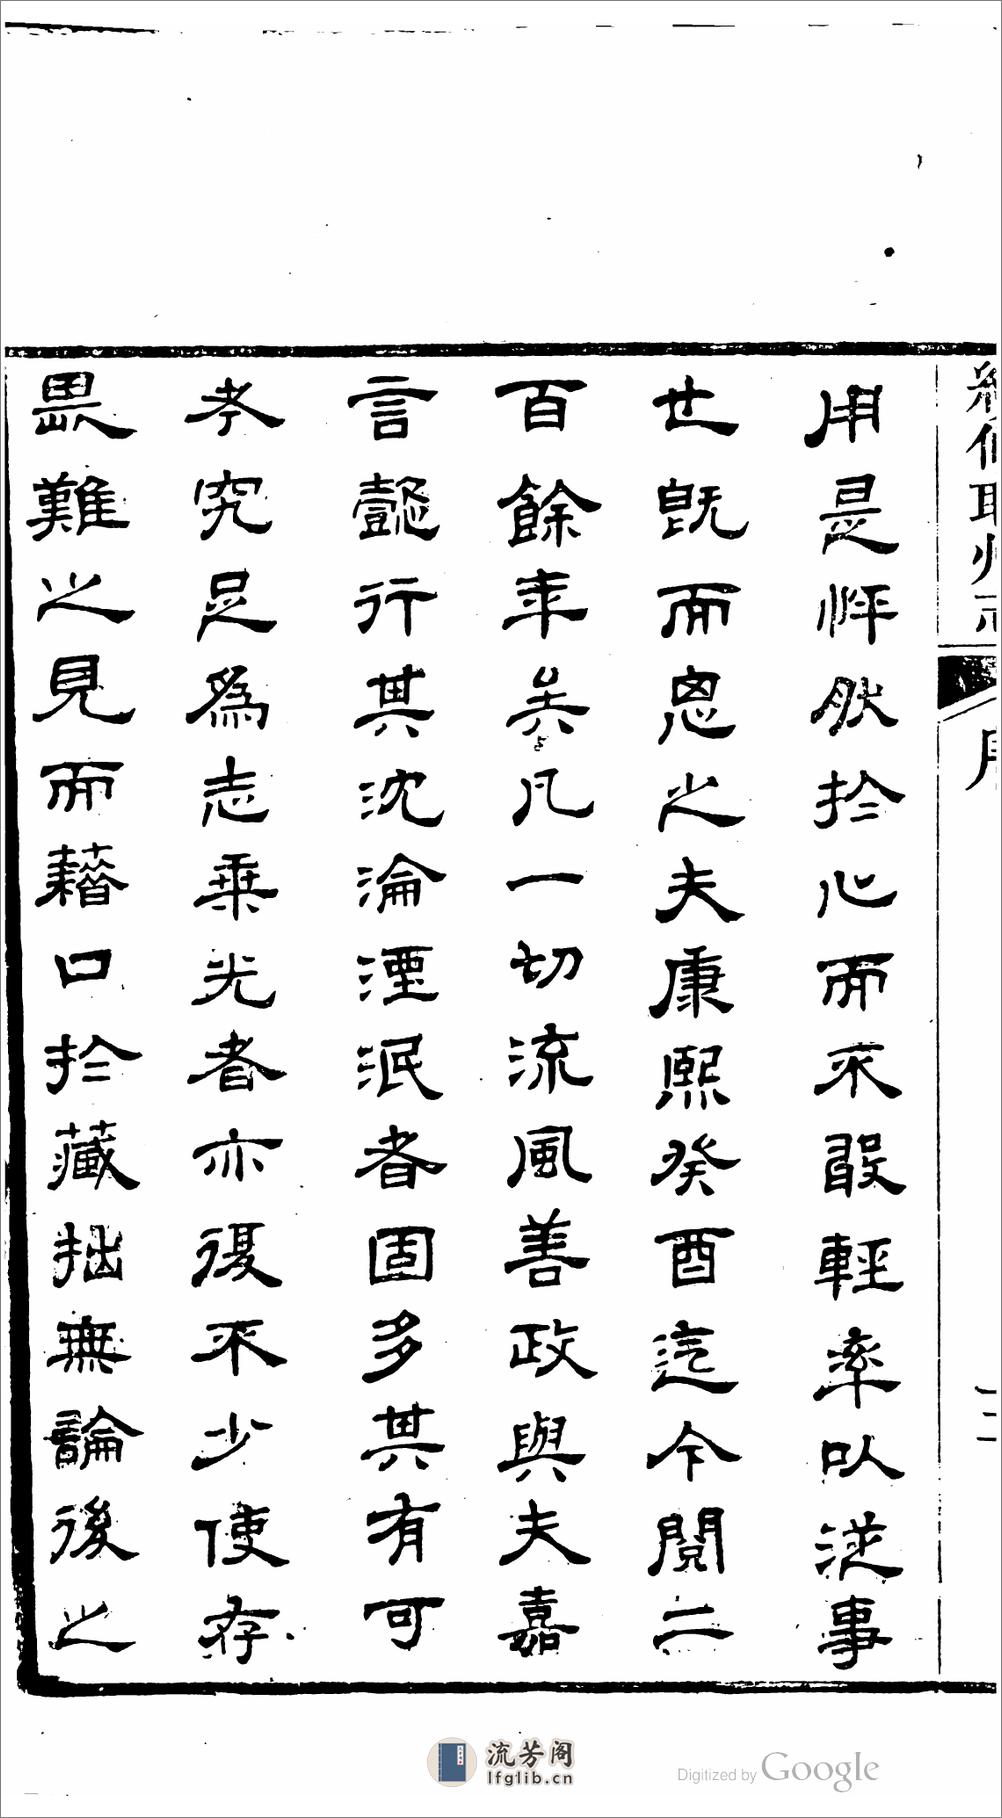 用是怦然於心而不敢輕率以從事
也既而思之夫康熙癸酉迄今閱二
百餘年矣凡一切流風善政與夫嘉
言懿行其沈淪湮泯者固多其有可
考究足為志乘光者亦復不少使存
畏難之見而藉口於藏拙無論後之
流芳阁
lfglib.cn
Digitized by Google